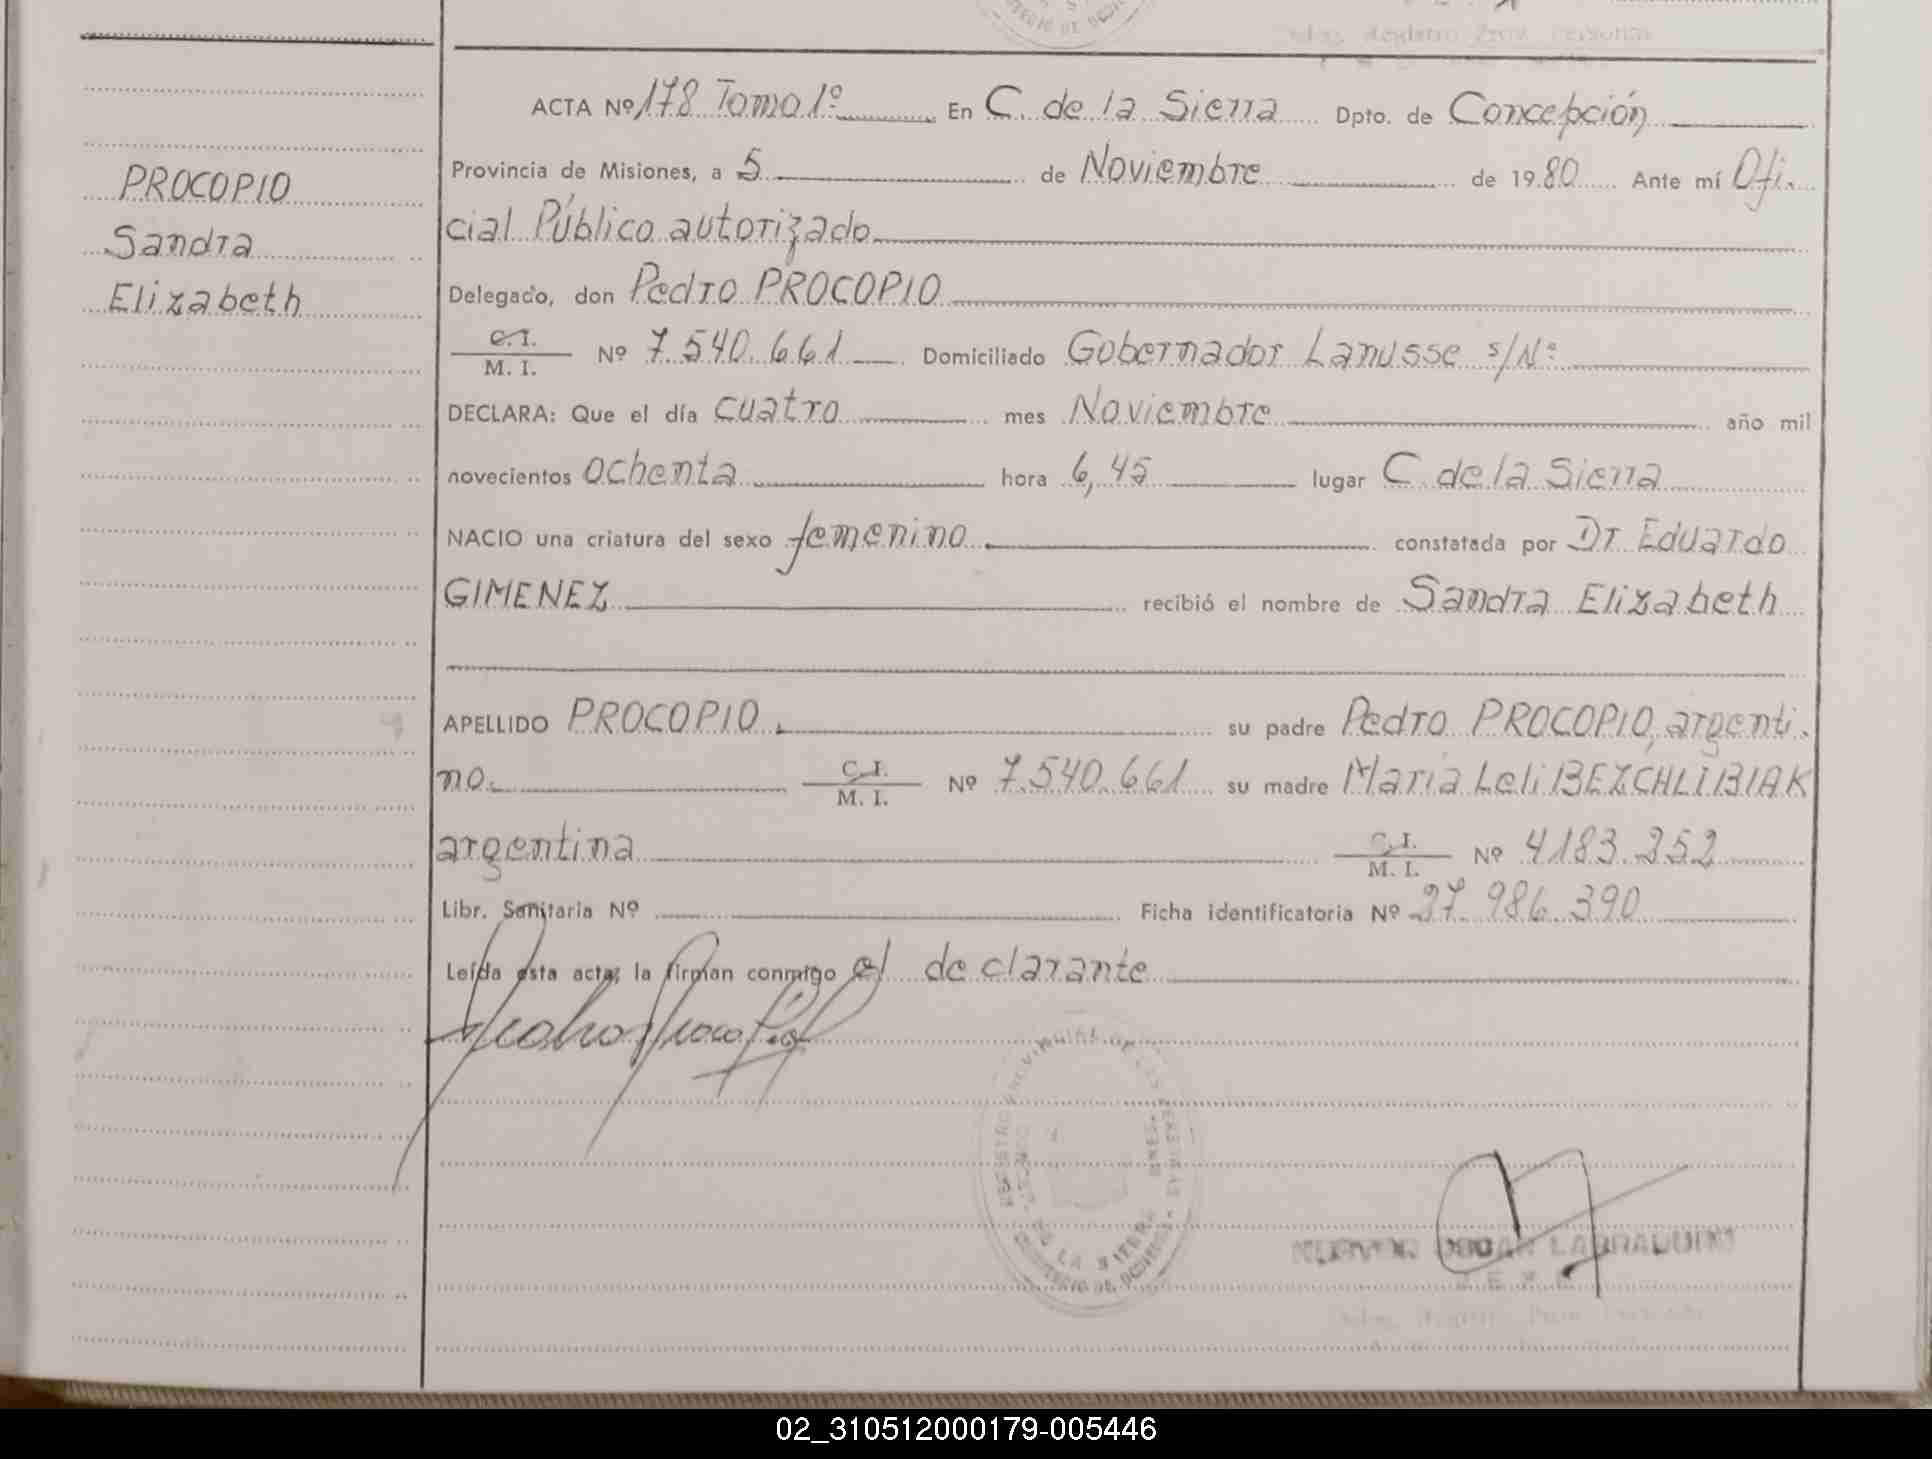 PROCOPIO
Sandra
Elizabeth
ACTA Nº 178 Tomo 1º En C. de la Sierra Dpto. de Concepción
Provincia de Misiones, a 5 de Noviembre de 1980 Ante mí Ofi-
cial Público autorizado
Delegado, don Pedro PROCOPIO
C. I.
M. I. Nº 7.540.661 Domiciliado Gobernador Lanusse s/Nº
DECLARA: Que el día cuatro mes Noviembre año mil
novecientos ochenta hora 6,45 lugar C. de la Sierra
NACIO una criatura del sexo femenino constatada por Dr Eduardo
GIMENEZ recibió el nombre de Sandra Elizabeth
APELLIDO PROCOPIO su padre Pedro PROCOPIO, argenti-
no. C. I.
M. I. Nº 7.540.661 su madre Maria Leli BEZCHLIBIAK
argentina C. I.
M. I. Nº 4183.252
Libr. Sanitaria Nº Ficha identificatoria Nº 27.986.390
Leída esta acta; la firman conmigo el declarante
DE LA SIERRA
JEFE
02_310512000179-005446